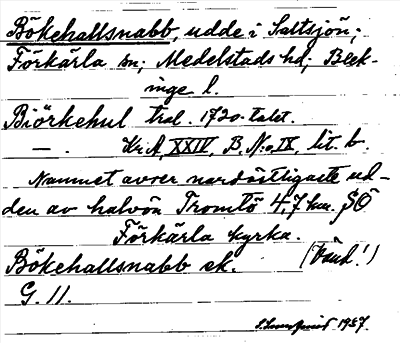 Bökehallsnabb, udde i Saltsjön;
Förkärla sn; Medelstads hd; Bleck-
inge l.
Biörkehul trol. 1720-talet.
— . Kr. A, XXIV, B. N:o IX, lit. b.
Namnet avser nordöstligaste ud-
den av halvön Tromtö 4,7 km. SÖ
Förkärla kyrka.
Bökehallsnabb ek. (Vänd!)
G. 11.
1927.